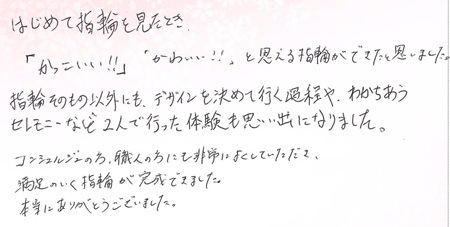 はじめて指輪を見たとき、
「かっこいい!!」「かわいい!!」と思える指輪ができたと思いました。
指輪そのもの以外にも、デザインを決めて行く過程や、わかちあう
セレモニーなど2人で行った体験も思い出になりました。
コンシェルジュの方、職人の方にも非常によくしていただき、
満足のいく指輪が完成できました。
本当にありがとうございました。